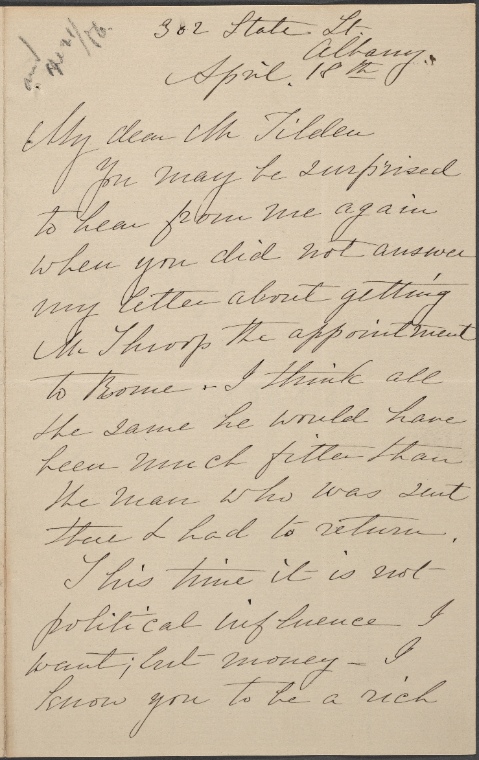 302 State St.
Albany.
April. 18th
My dear Mr Tilden
You may be surprised
to hear from me again
when you did not answer
my letter about getting
Mr Throop the appointment
to Rome - I think all
the same he would have
been much fitter than
the man who was sent
there & had to return.
This time it is not
political influence I
want; but money - I
know you to be a rich